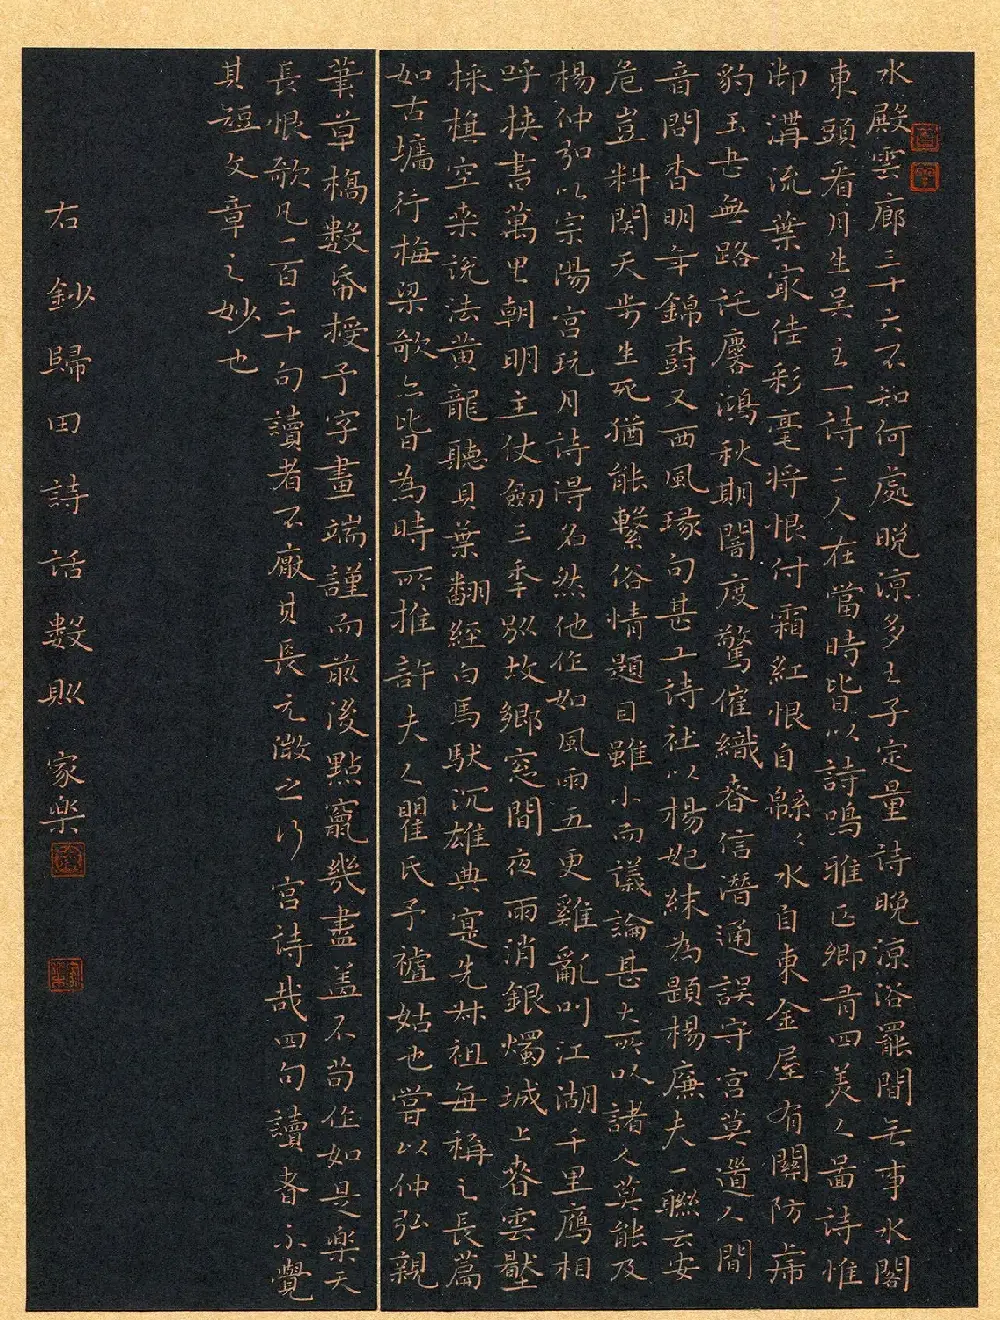 水殿雲廊三十六不知何處晚涼多王子定量詩晚涼浴罷閒無事水閣
東頭看月生吳主一詩二人在當時皆以詩鳴雅正卿有四美人圖詩惟
御溝流葉最佳彩毫將恨付霜紅恨自緜〻水自東金屋有關防虎
豹玉書無路託麐鴻秋期闇度驚催織春信潛通誤守宮莫道人間
音問杳明年錦樹又西風琢句甚工詩社以楊妃韈為題楊廉夫一聯云安
危豈料關天步生死猶能繫俗情題目雖小而議論甚大所以諸人莫能及
楊仲弘以宗陽宮玩月詩得名然他作如風雨五更雞亂叫江湖千里鴈相
呼挾書萬里朝明主仗劒三年別故鄉窓間夜雨消銀燭城上春雲壓
採旗空桑說法黃龍聽貝葉翻經白馬馱沉雄典寔先叔祖每稱之長篇
如古墻行梅梁歌亦皆為時所推許夫人瞿氏予祖姑也嘗以仲弘親
筆草稿數番授予字畫端謹而前後點竄幾盡蓋不苟作如是樂天
長恨歌凡一百二十句讀者不厭其長元微之行宮詩哉四句讀者不覺
其短文章之妙也
右鈔歸田詩話數則 家樂